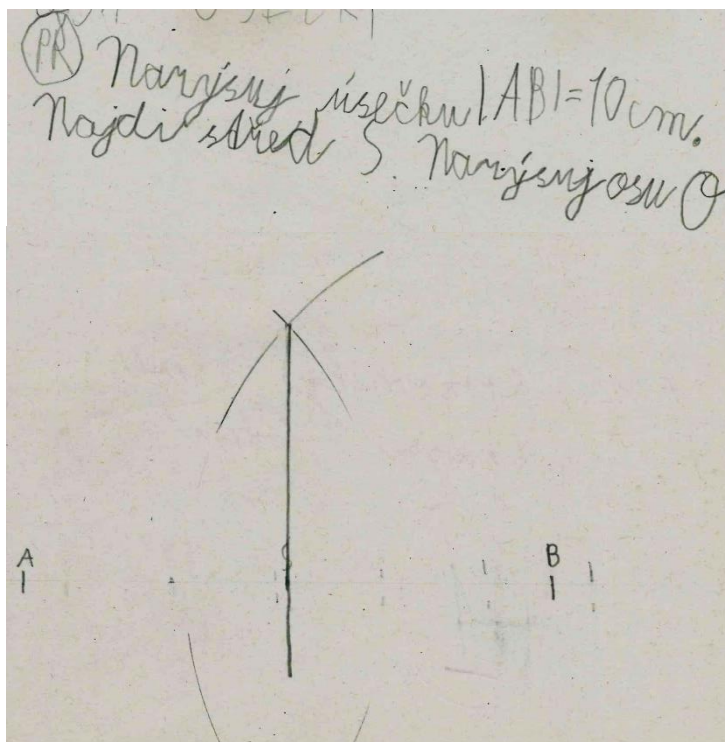 PŘ Narýsuj úsečku |AB|=10cm.
Najdi střed S. Narýsuj osu O
A S B